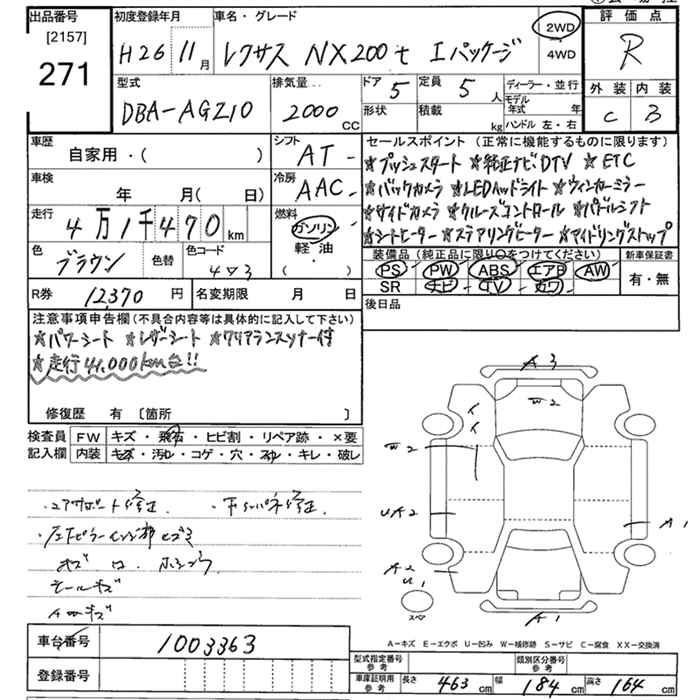 出品番号
[2157]
271
初度登録年月
H26 11月
車名・グレード
レクサス NX200t Iパッケージ
2WD
4WD
評価点
R
外装 内装
C 3
型式
DBA-AGZ10
排気量
2000 CC
ドア 5
形状
定員 5 人
積載 kg
ディーラー・並行
モデル年式 年
ハンドル 左・右
車歴
自家用・( )
シフト
AT-
車検
年 月( 日)
冷房
AAC-
走行
4万1千470km
燃料
ガソリン
軽・油
( )
色
ブラウン
色替
色コード
4▽3
セールスポイント (正常に機能するものに限ります)
★プッシュスタート ★純正ナビDTV ★ETC
★バックカメラ ★LEDヘッドライト ★ウィンカーミラー
★サイドカメラ ★クルーズコントロール ★パドルシフト
★シートヒーター ★ステアリングヒーター ★アイドリングストップ
装備品 (純正品に限り○をつけてください)
PS PW ABS エアB AW
SR ナビ TV カワ
新車保証書
有・無
R券 12,370 円
名変期限 月 日
後日品
注意事項申告欄(不具合内容等は具体的に記入して下さい)
★パワーシート ★レザーシート ★クリアランスソナー付
★走行41,000km台!!
修復歴 有 〔箇所 〕
検査員記入欄
FW キズ・飛石・ヒビ割・リペア跡・×要
内装 キズ・汚れ・コゲ・穴・スレ・キレ・破レ
・コアサポート修正 ・下
モールキズ
AWキズ
A3
W2
W2
UA2
A1
A2
U1
スペア
A1
A-キズ E-エクボ U-凹み W-補修跡 S-サビ C-腐食 XX-交換済
車台番号 1003363
登録番号
型式指定番号 参考
類別区分番号 参考
車庫証明用 参考
長さ 463 cm 幅 184 cm 高さ 164 cm